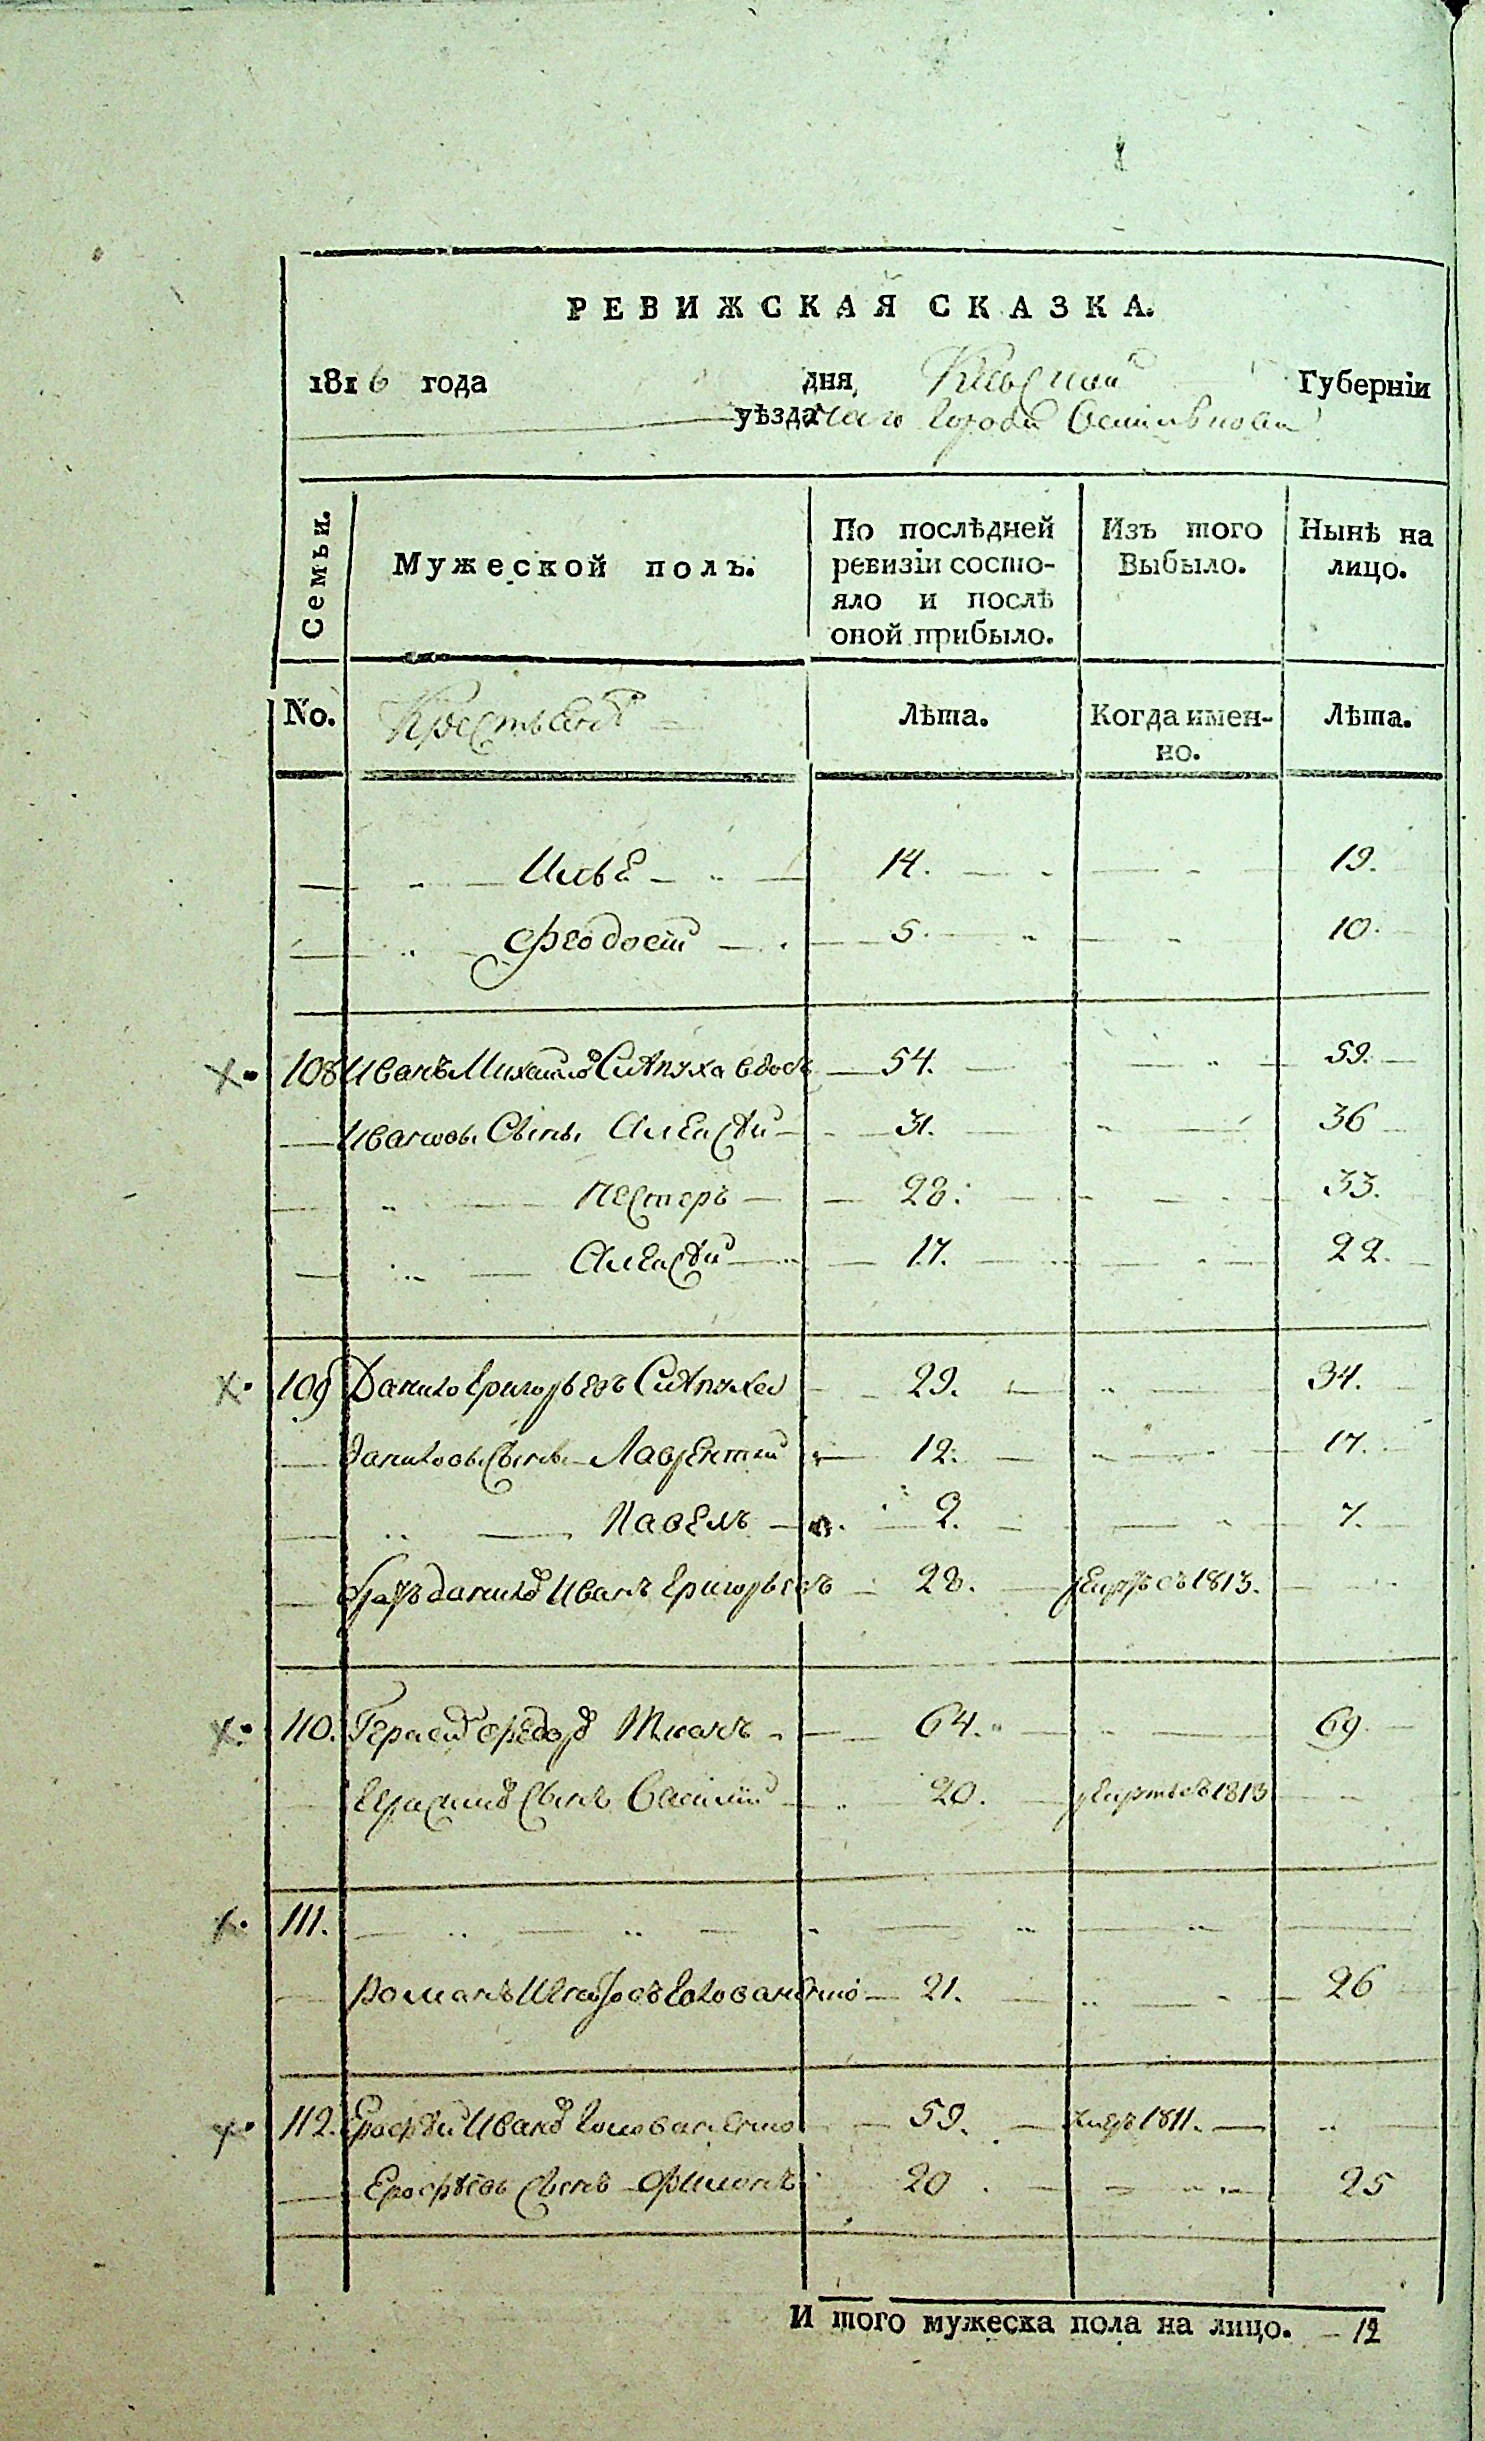 РЕВИЖСКАЯ СКАЗКА.
1816 года дня, Киевской Губерніи
уѣзда города Василькова
Семьи. Мужеской полъ. По послѣдней ревизіи состояло и послѣ оной прибыло. Изъ того Выбыло. Нынѣ на лицо.
No. Крестьянъ Лѣта. Когда именно. Лѣта.
Илья 14. 19.
Феодосій 5. 10.
108 Иванъ Михайловъ Ситруха вдовъ 54. 59.
Ивановы Сыны Алексѣй 31. 36
Нестеръ 28. 33.
Алексѣй 17. 22.
109 Данило Григорьевъ 29. 34.
Даниловы Сыны Лаврентій 12. 17.
Павелъ 2. 7.
братъ данилы Иванъ Григорьевъ 28. съ 1813.
110. Герасимъ Федоровъ Ткачъ 64. 69.
Герасимовъ Сынъ Василій 20. 1813
111.
Романъ Голованенко 21. 26
112. Ерофѣй Ивановъ Голованенко 59. умеръ 1811.
Ерофѣевъ сынъ Филонъ 20 25
И того мужеска пола на лицо. 12